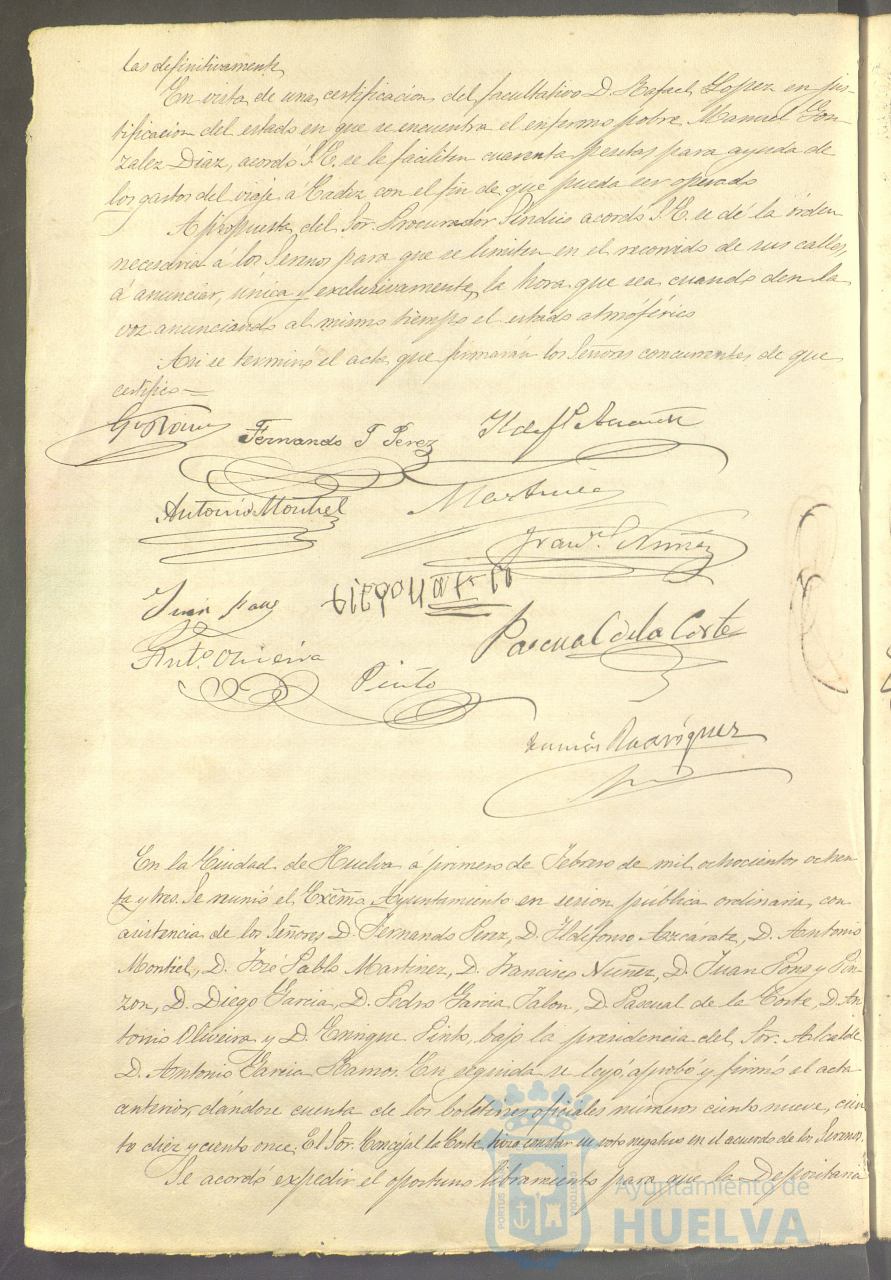 las definitivamente
En vista de una certificacion del facultativo D. Rafael Lopez en jus-
tificacion del estado en que se encuentra el enfermo pobre Manuel Gon
zalez Diaz, acordó S.E. se le faciliten cuarenta pesetas para ayuda de
los gastos del viaje á Cadiz con el fin de que pueda ser operado
A propuesta del Sor. Procurador Síndico acordó S.E. se dé la órden
necesaria á los Serenos para que se limiten en el recorrido de sus calles,
á anunciar, única y exclusivamente, la hora que sea cuando den la
voz anunciando al mismo tiempo el estado atmosférico
Asi se terminó el acta que firmarán los Señores concurrentes de que
certifico=
Fernando T Perez
Antonio Montiel
Martinez
Franco. Nuñez
Juan Pons
Pascual de la Corte
Anto. Oliveira
Pinto
Rodriguez
En la Ciudad de Huelva á primero de Febrero de mil ochocientos ochen
ta y tres. Se reunió el Excmo. Ayuntamiento en sesion pública ordinaria, con
asistencia de los Señores D. Fernando Perez, D. Ildefonso Azcárate, D. Antonio
Montiel, D. José Pablo Martinez, D. Francisco Nuñez, D. Juan Pons y Pin
zon, D. Diego Garcia, D. Pedro Garcia Jalon, D. Pascual de la Corte, D. An
tonio Oliveira y D. Enrique Pinto, bajo la presidencia del Sor. Alcalde
D. Antonio Garcia Ramos. En seguida se leyó, aprobó y firmó el acta
anterior, dándose cuenta de los boletines oficiales números ciento nueve, cien
to diez y ciento once. El Sor. Concejal la Corte hizo constar su voto negativo en el acuerdo de los Serenos.
Se acordó expedir el oportuno libramiento para que la Depositaria
Ayuntamiento de
HUELVA